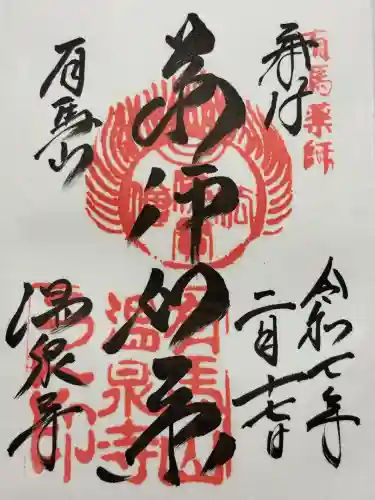 奉拝
有馬薬師
令和七年
二月十七日
薬師如来
有馬山
温泉寺
有馬山
温泉寺